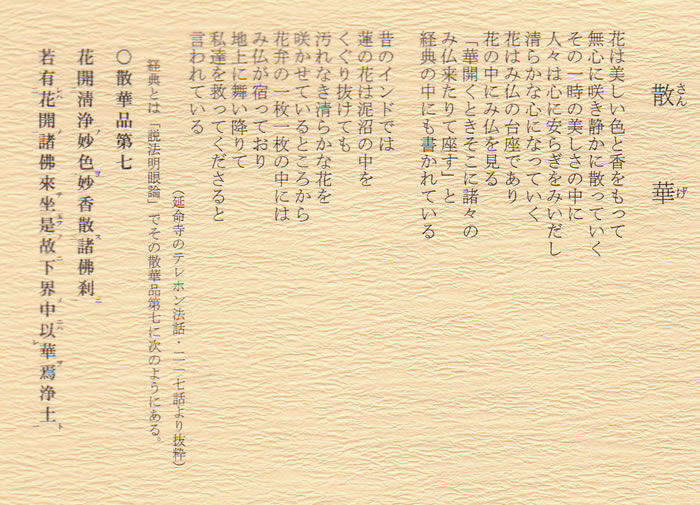 散華
さんげ
花は美しい色と香をもって
無心に咲き静かに散っていく
その一時の美しさの中に
人々は心に安らぎをみいだし
清らかな心になっていく
花はみ仏の台座であり
花の中にみ仏を見る
「華開くときそこに諸々の
み仏来たりて座す」と
経典の中にも書かれている
昔のインドでは
蓮の花は泥沼の中を
くぐり抜けても
汚れなき清らかな花を
咲かせているところから
花弁の一枚一枚の中には
み仏が宿っており
地上に舞い降りて
私達を救ってくださると
言われている
（延命寺のテレホン法話・二一七話より抜粋）
経典とは「説法明眼論」でその散華品第七に次のようにある。
〇散華品第七
花開清浄妙色妙香散諸佛刹
若有花開諸佛來坐是故下界中以華焉浄土